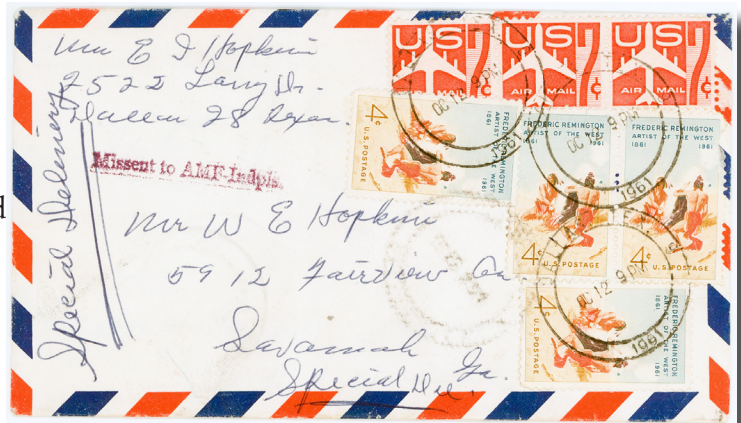 Mrs E I Hopkins
2522 Larry Dr.
Dallas 28 Texas.
Special Delivery
Missent to AMF. Indpls.
Mr W E Hopkins
5912 Fairview
Savannah Ga.
Special Del.
US AIR MAIL 7¢
US AIR MAIL 7¢
US AIR MAIL 7¢
FREDERIC REMINGTON
ARTIST OF THE WEST
1861 1961
4¢ U.S. POSTAGE
FREDERIC REMINGTON
ARTIST OF THE WEST
1861 1961
4¢ U.S. POSTAGE
FREDERIC REMINGTON
ARTIST OF THE WEST
1861 1961
4¢ U.S. POSTAGE
FREDERIC REMINGTON
ARTIST OF THE WEST
1861 1961
4¢ U.S. POSTAGE
OC 12 9 PM
1961
OC 9 PM
1961
TEX
OC 12 9 PM
1961
d